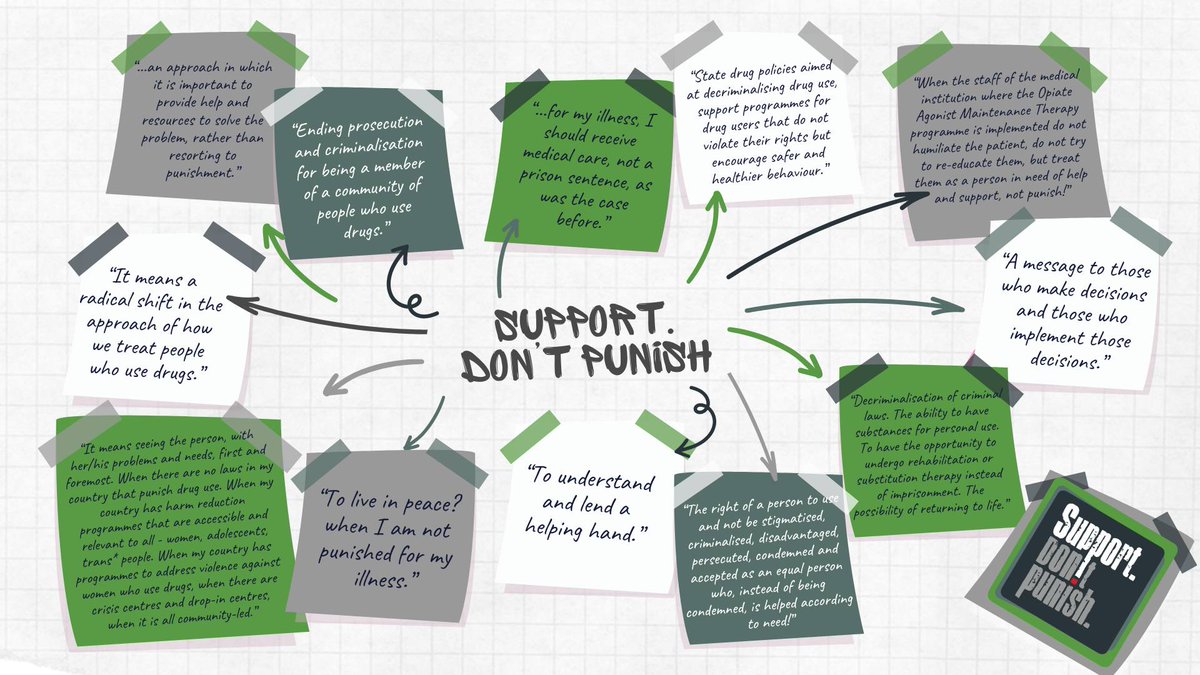 “...an approach in which
it is important to
provide help and
resources to solve the
problem, rather than
resorting to
punishment.”
“Ending prosecution
and criminalisation
for being a member
of a community of
people who use
drugs.”
“...for my illness, I
should receive
medical care, not a
prison sentence, as
was the case
before.”
“State drug policies aimed
at decriminalising drug use,
support programmes for
drug users that do not
violate their rights but
encourage safer and
healthier behaviour.”
“When the staff of the medical
institution where the Opiate
Agonist Maintenance Therapy
programme is implemented do not
humiliate the patient, do not try
to re-educate them, but treat
them as a person in need of help
and support, not punish!”
“It means a
radical shift in the
approach of how
we treat people
who use drugs.”
SUPPORT.
DON'T PUNISH
“A message to those
who make decisions
and those who
implement those
decisions.”
“It means seeing the person, with
her/his problems and needs, first and
foremost. When there are no laws in my
country that punish drug use. When my
country has harm reduction
programmes that are accessible and
relevant to all - women, adolescents,
trans* people. When my country has
programmes to address violence against
women who use drugs, when there are
crisis centres and drop-in centres,
when it is all community-led.”
“To live in peace?
when I am not
punished for my
illness.”
“To understand
and lend a
helping hand.”
“The right of a person to use
and not be stigmatised,
criminalised, disadvantaged,
persecuted, condemned and
accepted as an equal person
who, instead of being
condemned, is helped according
to need!”
“Decriminalisation of criminal
laws. The ability to have
substances for personal use.
To have the opportunity to
undergo rehabilitation or
substitution therapy instead
of imprisonment. The
possibility of returning to life.”
Support.
Don't
punish.